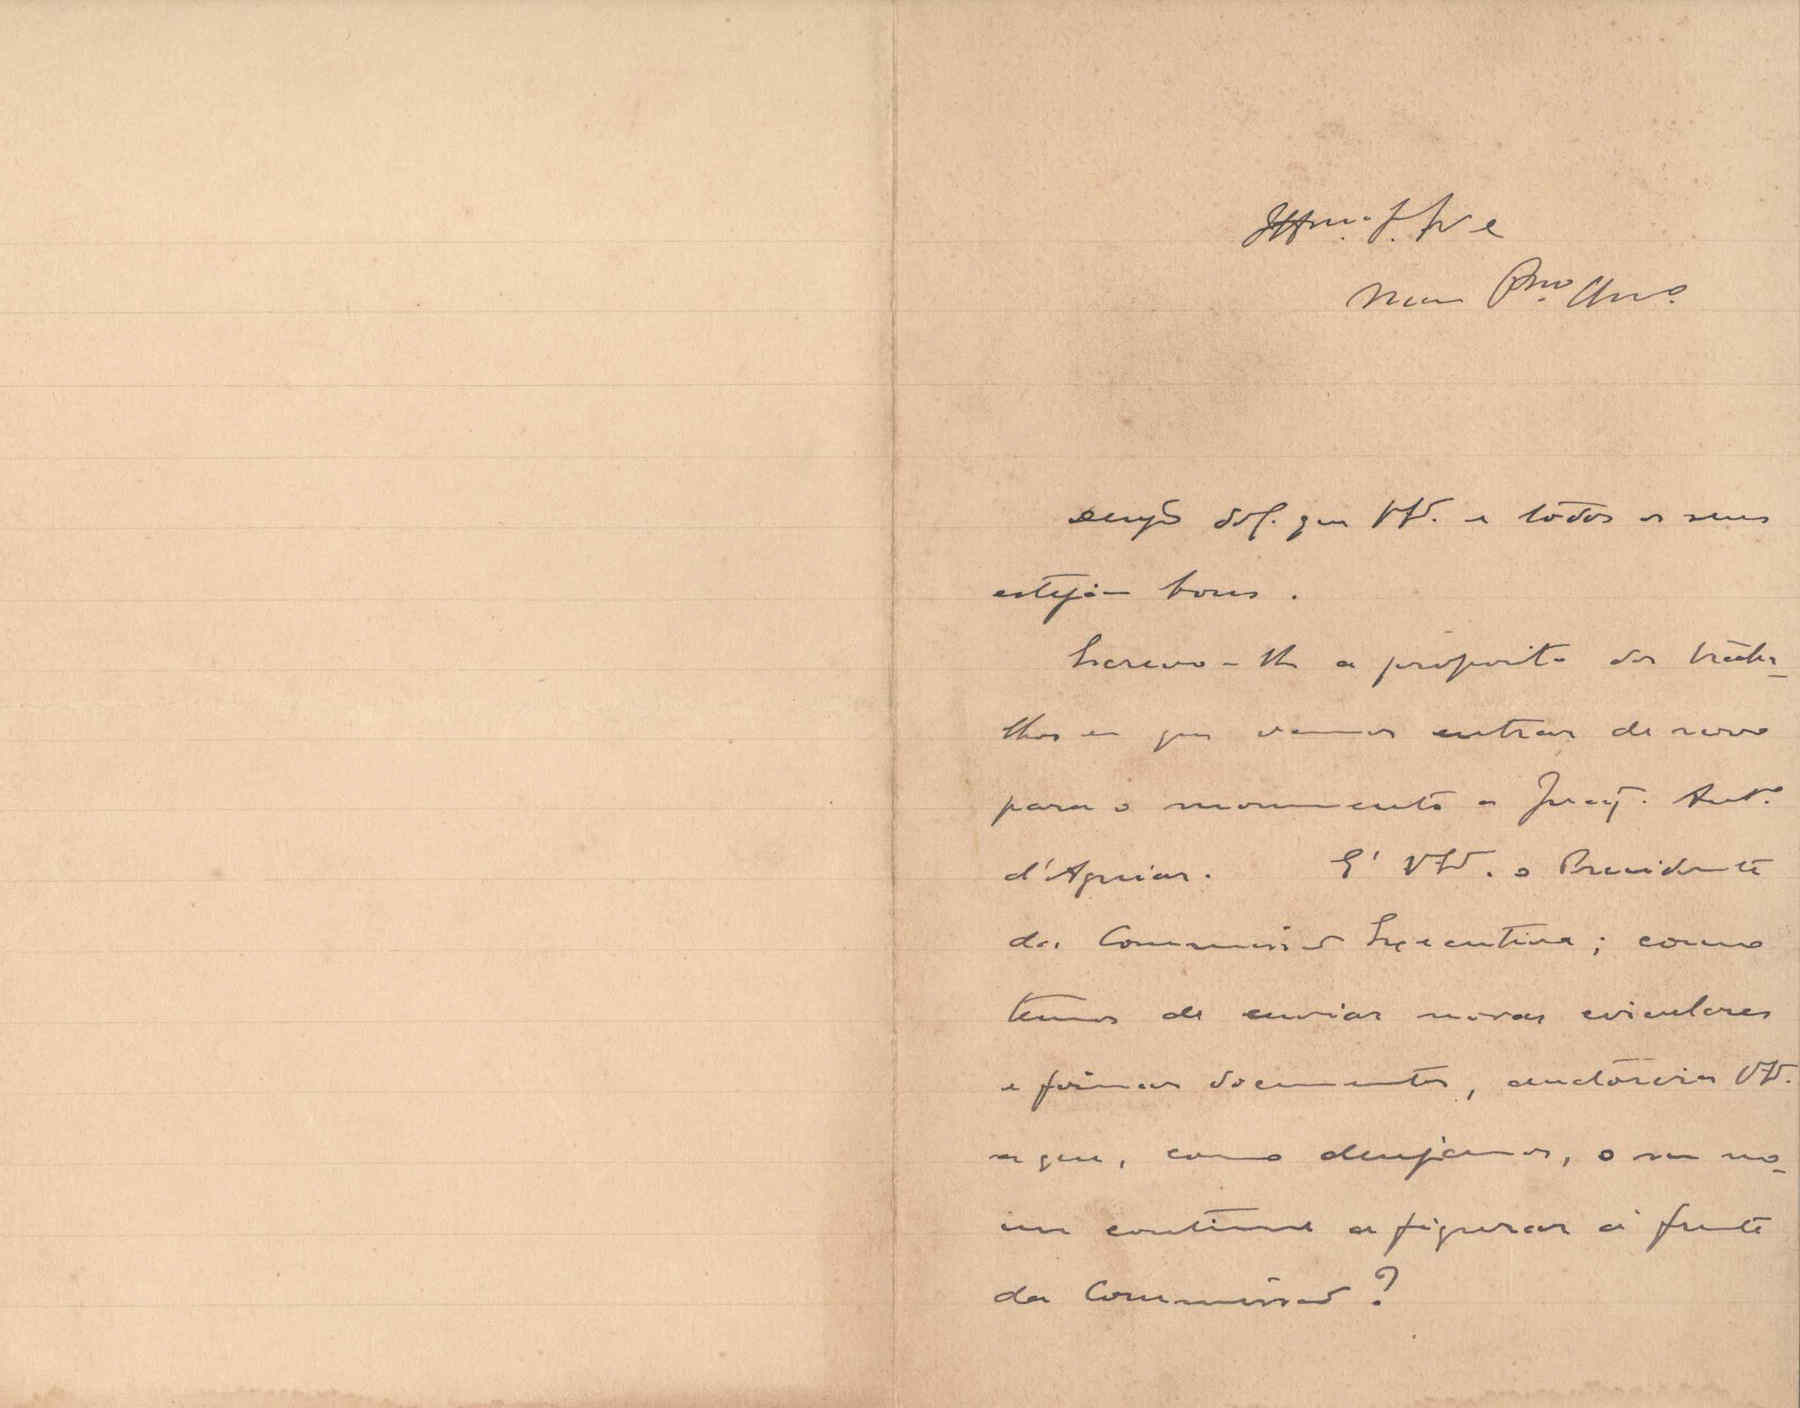 Meu Presº. Amº.
Desejo que V. Ex. e todos os seus
estejão bons.
Escrevo-lhe a proposito dos traba-
lhos em que vamos entrar de novo
para o monumento a Joaq. Antº.
d'Aguiar. E' V. Ex. o Presidente
da Commissão Executiva; como
temos de enviar novas circulares
e firmar documentos, auctorisa V. Ex.
a que, como desejamos, o seu no-
me continue a figurar á frente
da Commissão?